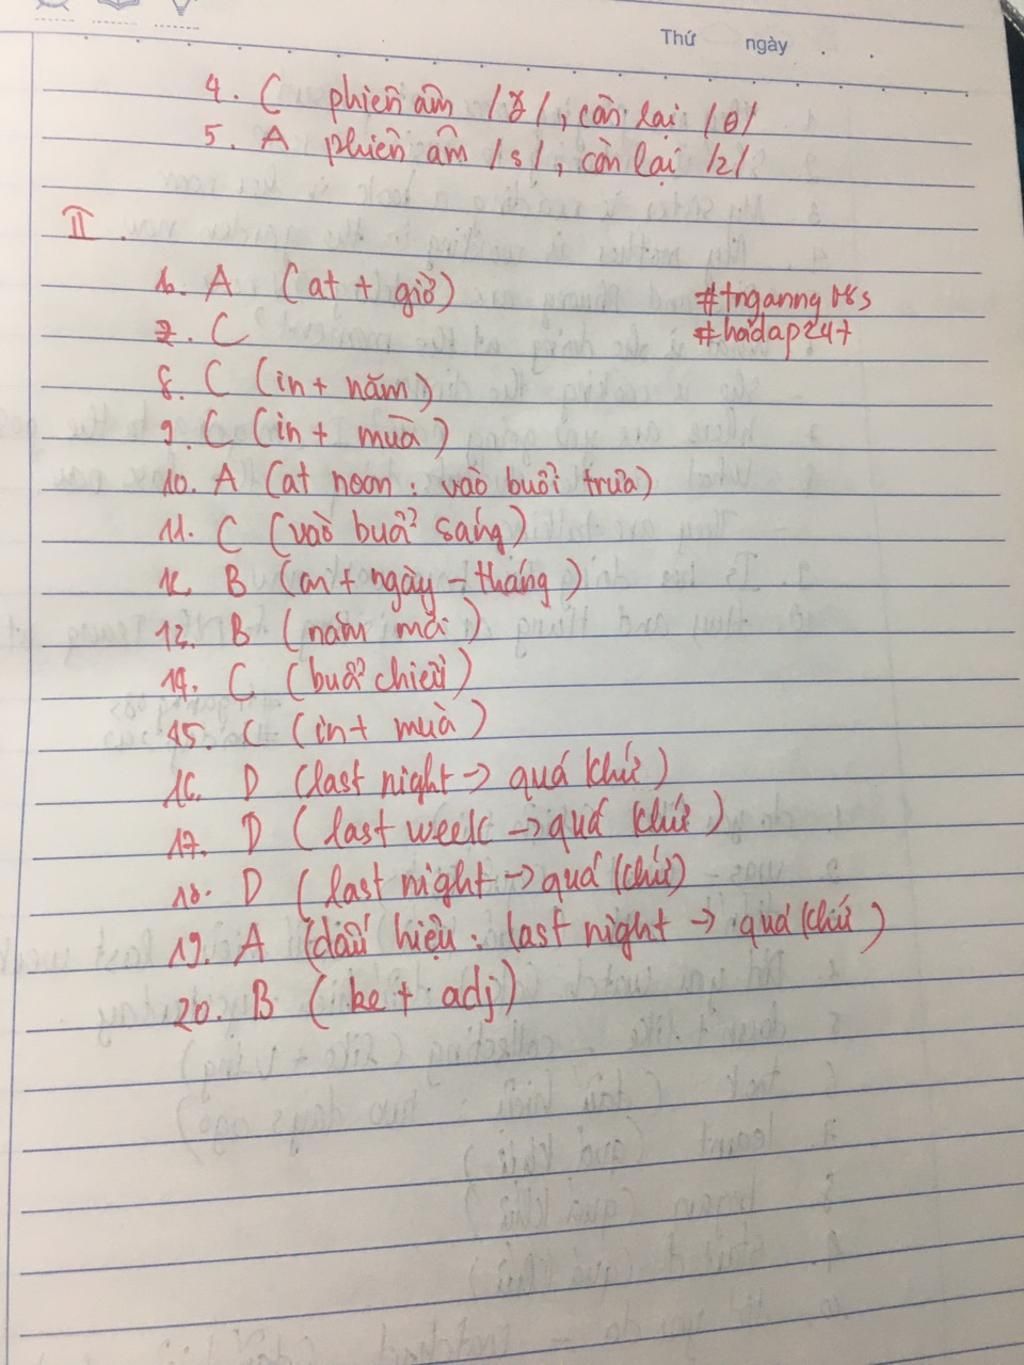 Thứ ngày
4. C phiên âm /ð/, còn lại /θ/
5. A phiên âm /s/, còn lại /z/
II.
6. A (at + giờ)
#tnganng
#hoidap247
7. C
8. C (in + năm)
9. C (in + mùa)
10. A (at noon: vào buổi trưa)
11. C (vào buổi sáng)
12. B (on + ngày - tháng)
13. B (năm mới)
14. C (buổi chiều)
15. C (in + mùa)
16. D (last night -> quá khứ)
17. D (last week -> quá khứ)
18. D (last night -> quá khứ)
19. A (dấu hiệu: last night -> quá khứ)
20. B (be + adj)